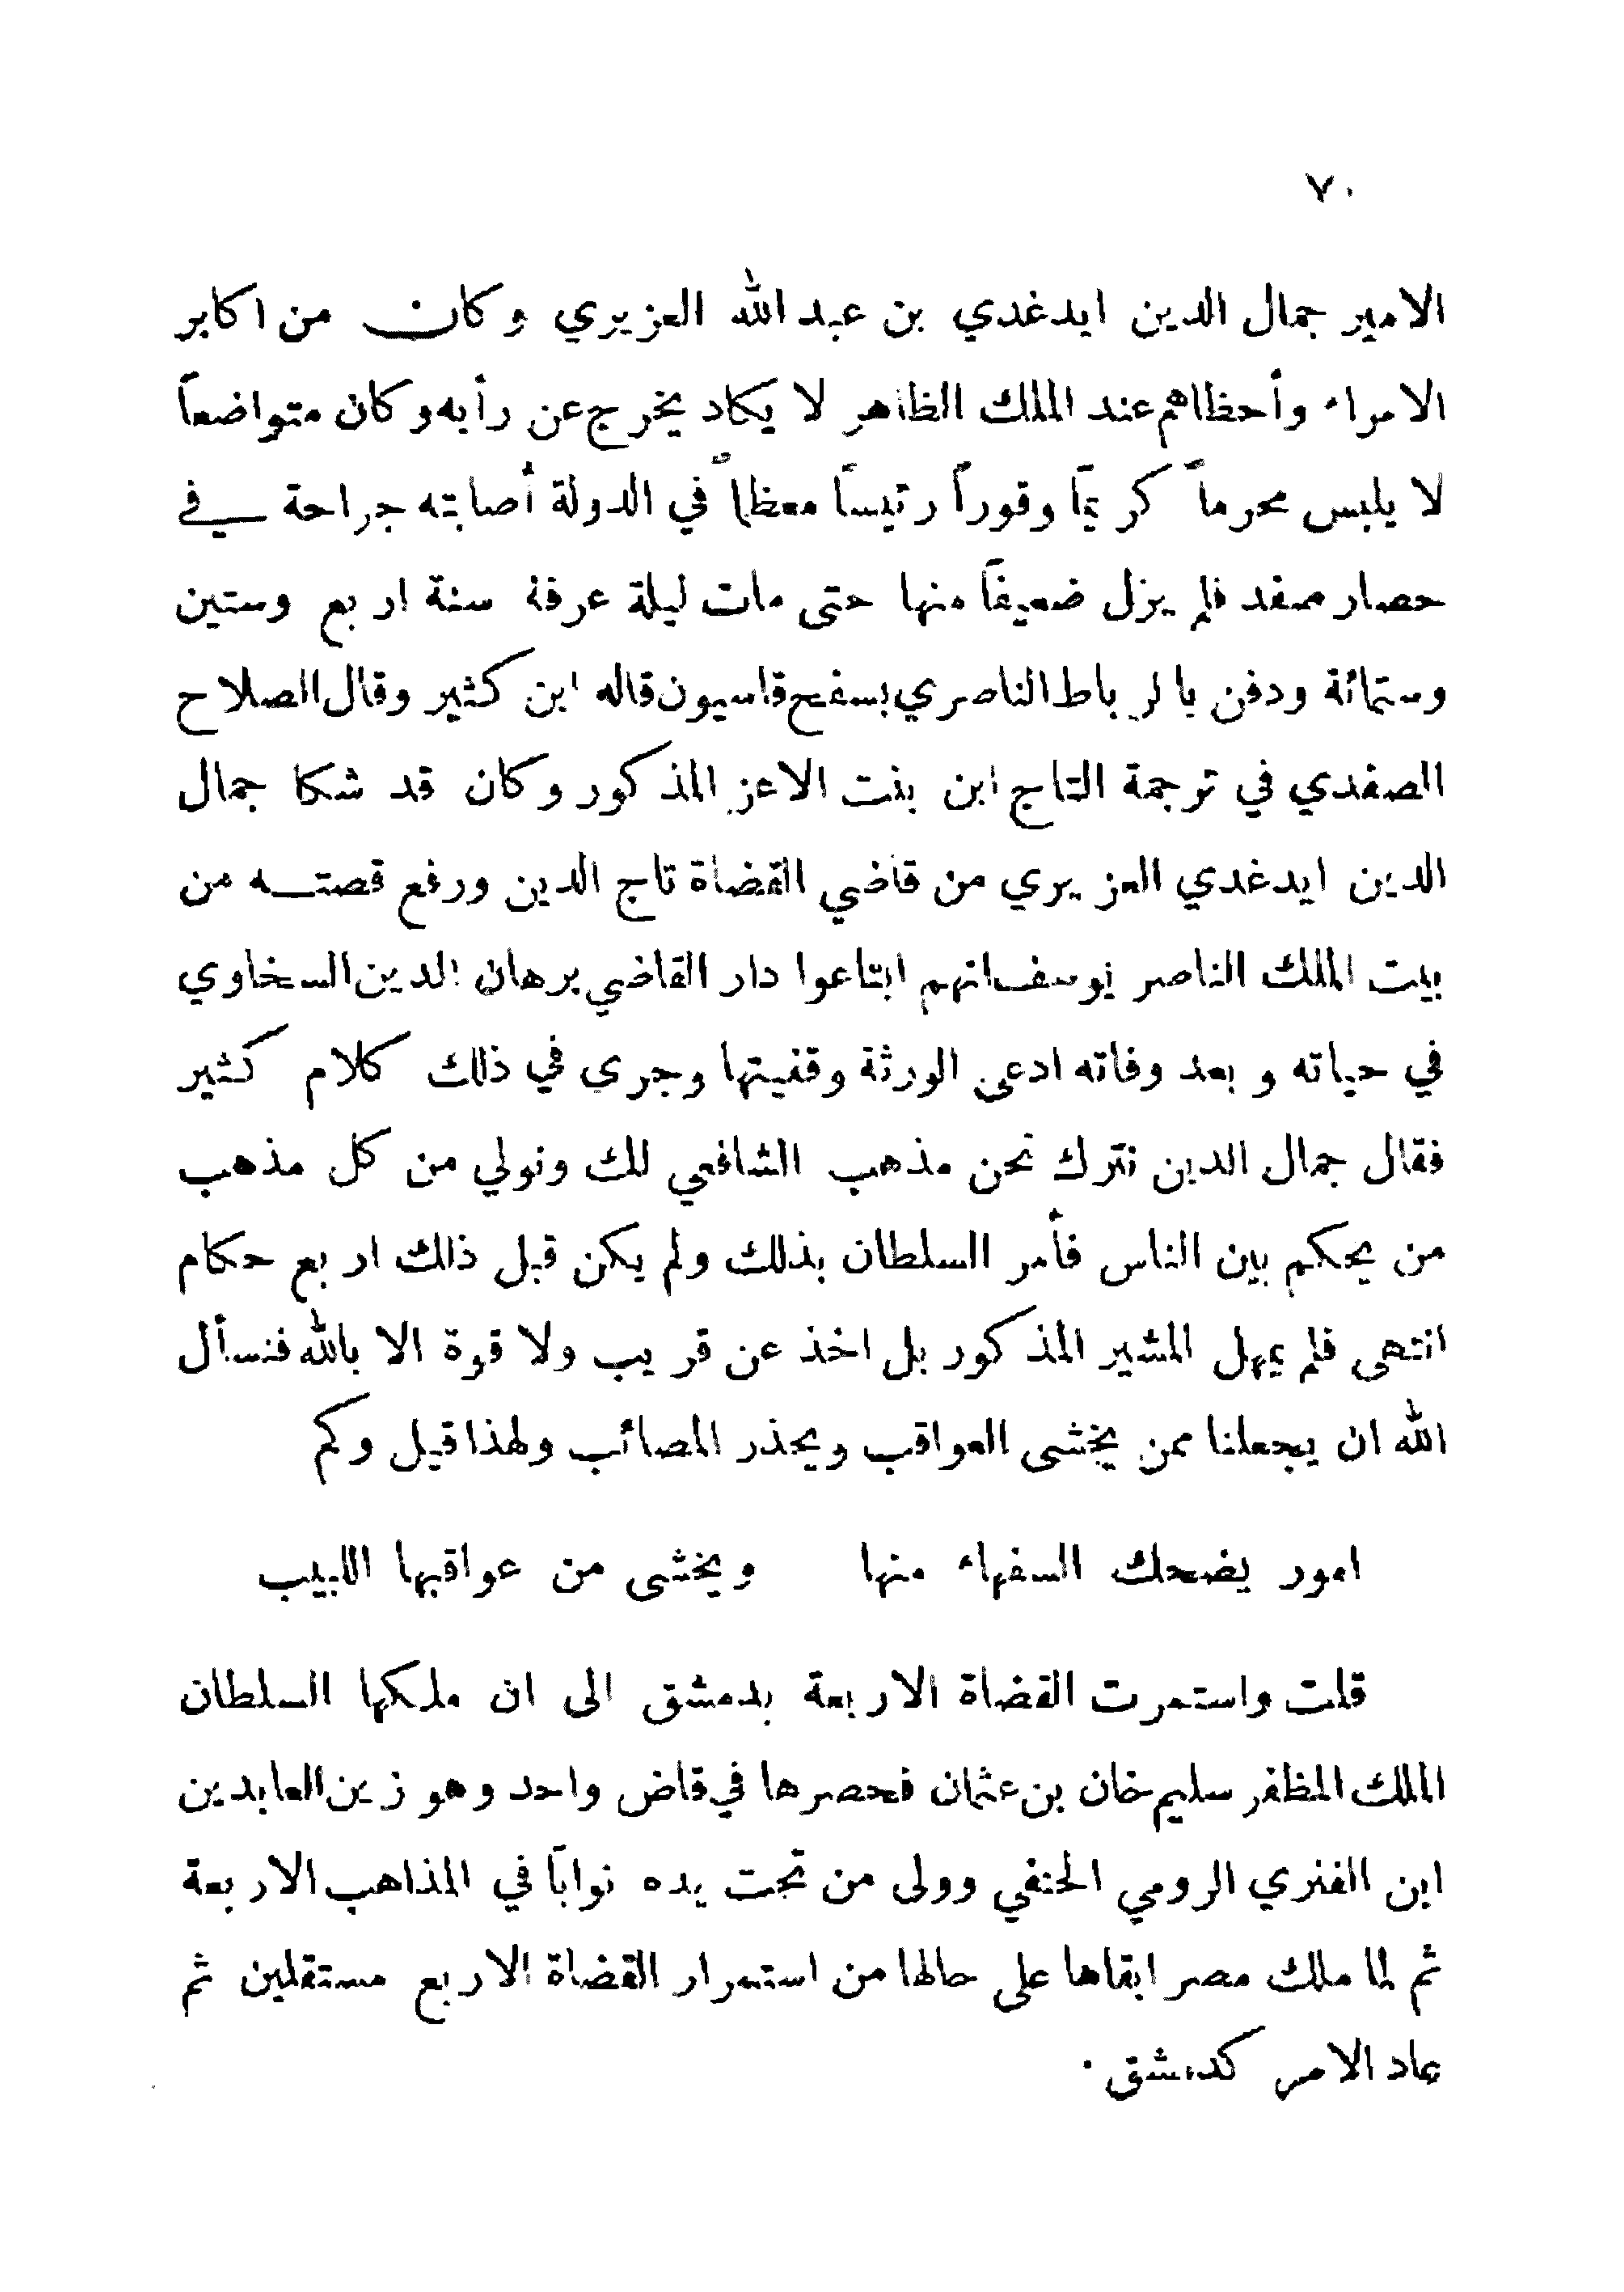 ٧٠
الامير جمال الدين ايدغدي بن عبد الله العزيري وكان من اكابر
الامراء وأحظاهم عند الملك الظاهر لا يكاد يخرج عن رأيه وكان متواضعاً
لا يلبس محرماً كريماً وقوراً رئيساً معظماً في الدولة أصابته جراحة في
حصار صفد فلم يزل ضعيفاً منها حتى مات ليلة عرفة سنة اربع وستين
وستمائة ودفن بالرباط الناصري بسفح قاسيون قاله ابن كثير وقال الصلاح
الصفدي في ترجمة التاج ابن بنت الاعز المذكور وكان قد شكا جمال
الدين ايدغدي العزيري من قاضي القضاة تاج الدين ورفع قصته من
بيت الملك الناصر يوسف انهم ابتاعوا دار القاضي برهان الدين السخاوي
في حياته وبعد وفاته ادعى الورثة وقفيتها وجرى في ذلك كلام كثير
فقال جمال الدين نترك نحن مذهب الشافعي لك ونولي من كل مذهب
من يحكم بين الناس فأمر السلطان بذلك ولم يكن قبل ذلك اربع حكام
انتهى فلم يمهل المشير المذكور بل اخذ عن قريب ولا قوة الا بالله فنسأل
الله ان يجعلنا ممن يخشى العواقب ويحذر المصائب ولهذا قيل وكم
امور يضحك السفهاء منها ويخشى من عواقبها اللبيب
قلت واستمرت القضاة الاربعة بدمشق الى ان ملكها السلطان
الملك المظفر سليم خان بن عثمان فحصرها في قاض واحد وهو زين العابدين
ابن الفنري الرومي الحنفي وولى من تحت يده نواباً في المذاهب الاربعة
ثم لما ملك مصر ابقاها على حالها من استمرار القضاة الاربع مستقلين ثم
عاد الامر كدمشق ·